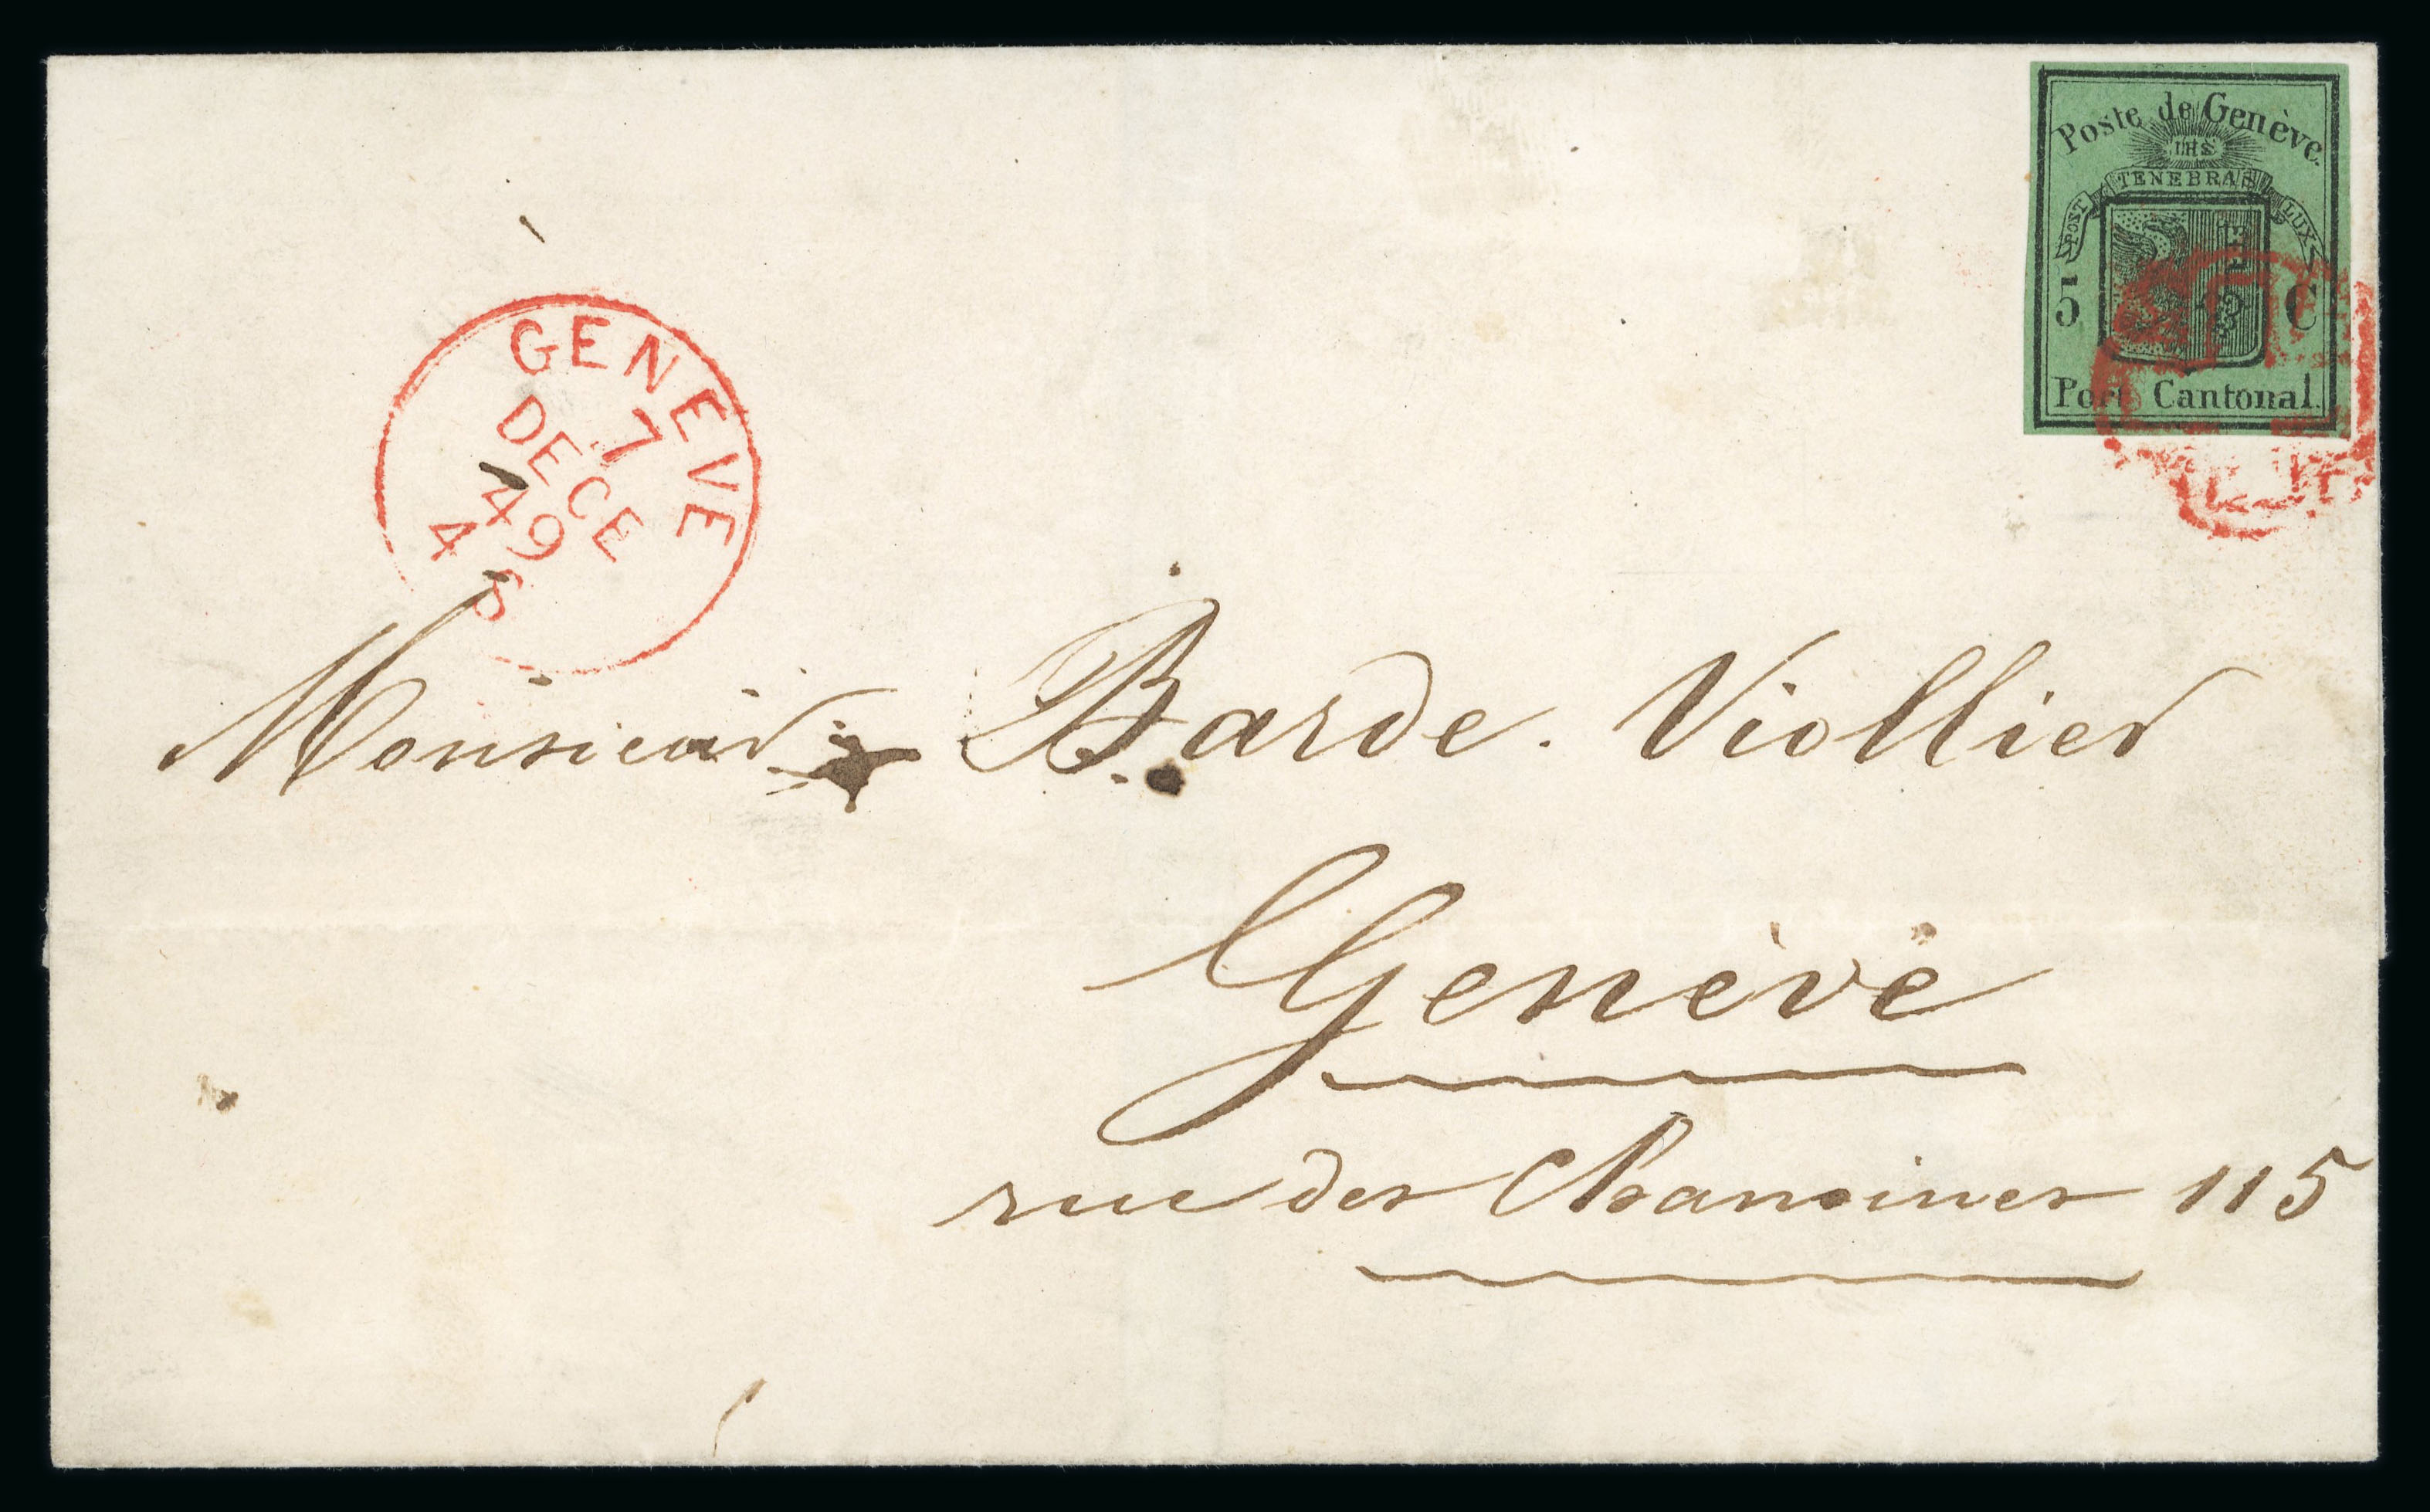 Poste de Genève.
IHS
POST TENEBRAS LUX
5 C
Port Cantonal.
GENEVE
7
DECE
49
4 S
Monsieur Barde. Viollier
Genève
rue des Chanoines 115